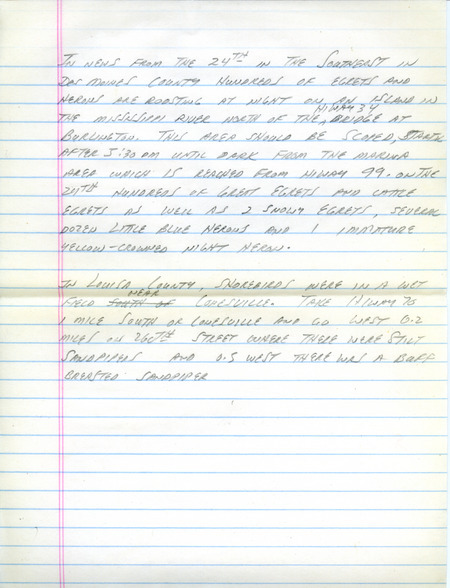 IN NEWS FROM THE 24TH IN THE SOUTHEAST IN
DES MOINES COUNTY HUNDREDS OF EGRETS AND
HERONS ARE ROOSTING AT NIGHT ON AN ISLAND IN
THE MISSISSIPPI RIVER NORTH OF THE HIWAY 34 BRIDGE AT
BURLINGTON. THIS AREA SHOULD BE SCOPED,
AFTER 5:30 PM UNTIL DARK FROM THE MARINA
AREA WHICH IS REACHED FROM HIWAY 99. ON THE
24TH HUNDREDS OF GREAT EGRETS AND CATTLE
EGRETS AS WELL AS 2 SNOWY EGRETS, SEVERAL
DOZEN LITTLE BLUE HERONS AND 1 IMMATURE
YELLOW-CROWNED NIGHT HERON.
IN LOUISA COUNTY, SHOREBIRDS WERE IN A WET
FIELD SOUTH OF NEAR COLUMBUS JUNCTION. TAKE HIWAY TO
1 MILE SOUTH OF AND GO WEST 0.2
MILES ON 260TH STREET WHERE THERE WERE STILT
SANDPIPERS AND 0.5 WEST THERE WAS A BUFF
BREASTED SANDPIPER